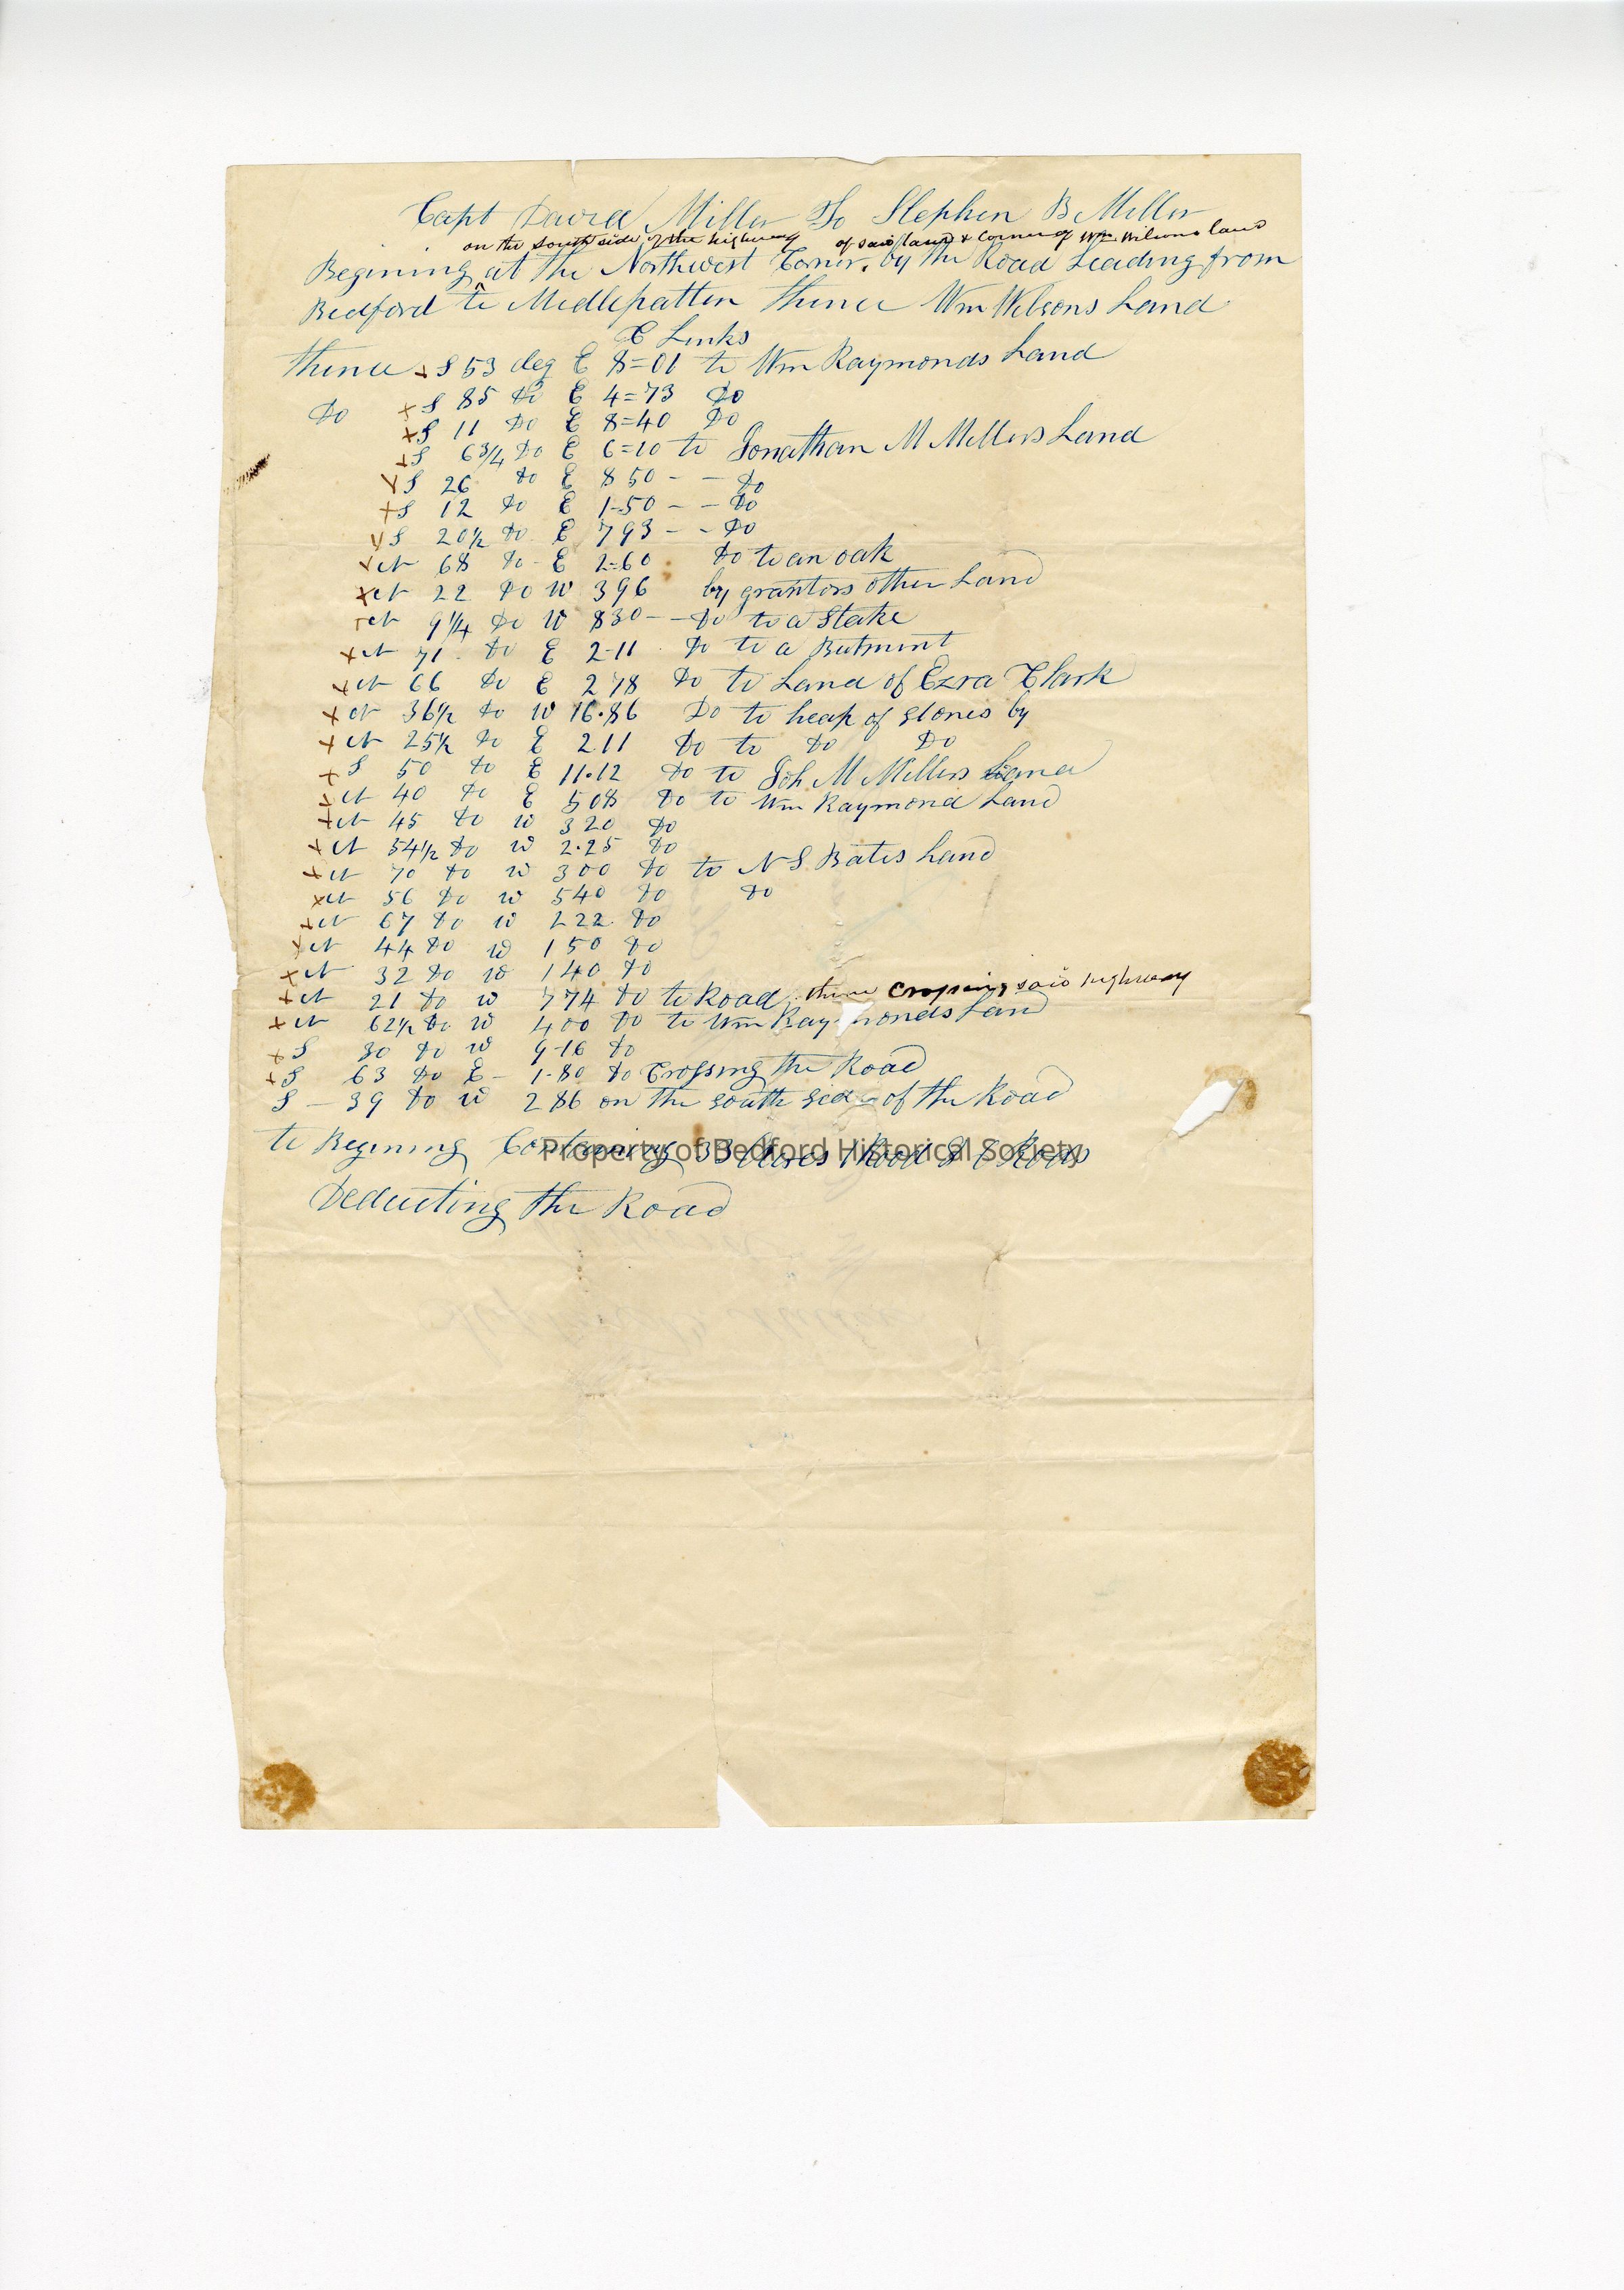 Capt David Miller To Stephen B Miller
on the south side of the highway of said land & Corner of Wm Wilsons land
Begining at the Northwest Corner, by the Road Leading from
Bedford to Medlepatten thence Wm Wilsons Land
C Links
thence x S 53 deg E 8=01 to Wm Raymonds Land
Do x S 85 Do E 4=73 Do
x S 11 Do E 8=40 Do
x S 6 3/4 Do E 6=10 to Jonathan M Millers Land
x S 26 Do E 8 50 - - Do
x S 12 Do E 1-50 - - Do
x S 20 1/2 Do E 7 93 - - Do
x N 68 Do - E 2=60 Do to an oak
x N 22 Do W 3 96 by grantors other Land
N 9 1/4 Do W 8 30 - - Do to a Stake
x N 71 - Do E 2-11 Do to a Butment
x N 66 Do E 2 78 Do to Land of Ezra Clark
x N 36 1/2 Do W 16.86 Do to heap of stones by
x N 25 1/2 Do E 2.11 Do to Do Do
x S 50 Do E 11.12 Do to Joh M Millers Land
x N 40 Do E 5 08 Do to Wm Raymond Land
x N 45 Do W 3 20 Do
x N 54 1/2 Do W 2.25 Do
x N 70 Do W 3 00 Do to N S Bates Land
x N 56 Do W 5 40 Do Do
x N 67 Do W 2 22 Do
x N 44 Do W 1 50 Do
x N 32 Do W 1 40 Do
x N 21 Do W 7 74 Do to Road, thence Crossing said highway
x N 62 1/2 Do W 4 00 Do to Wm Raymonds Land
x S 30 Do W 9-16 Do
x S 63 Do E - 1-80 Do Crossing the Road
S - 39 Do W 2 86 on the south side of the Road
to Begining Containing 33 Acres 1 Rood & Rods
Property of Bedford Historical Society
Deducting the Road